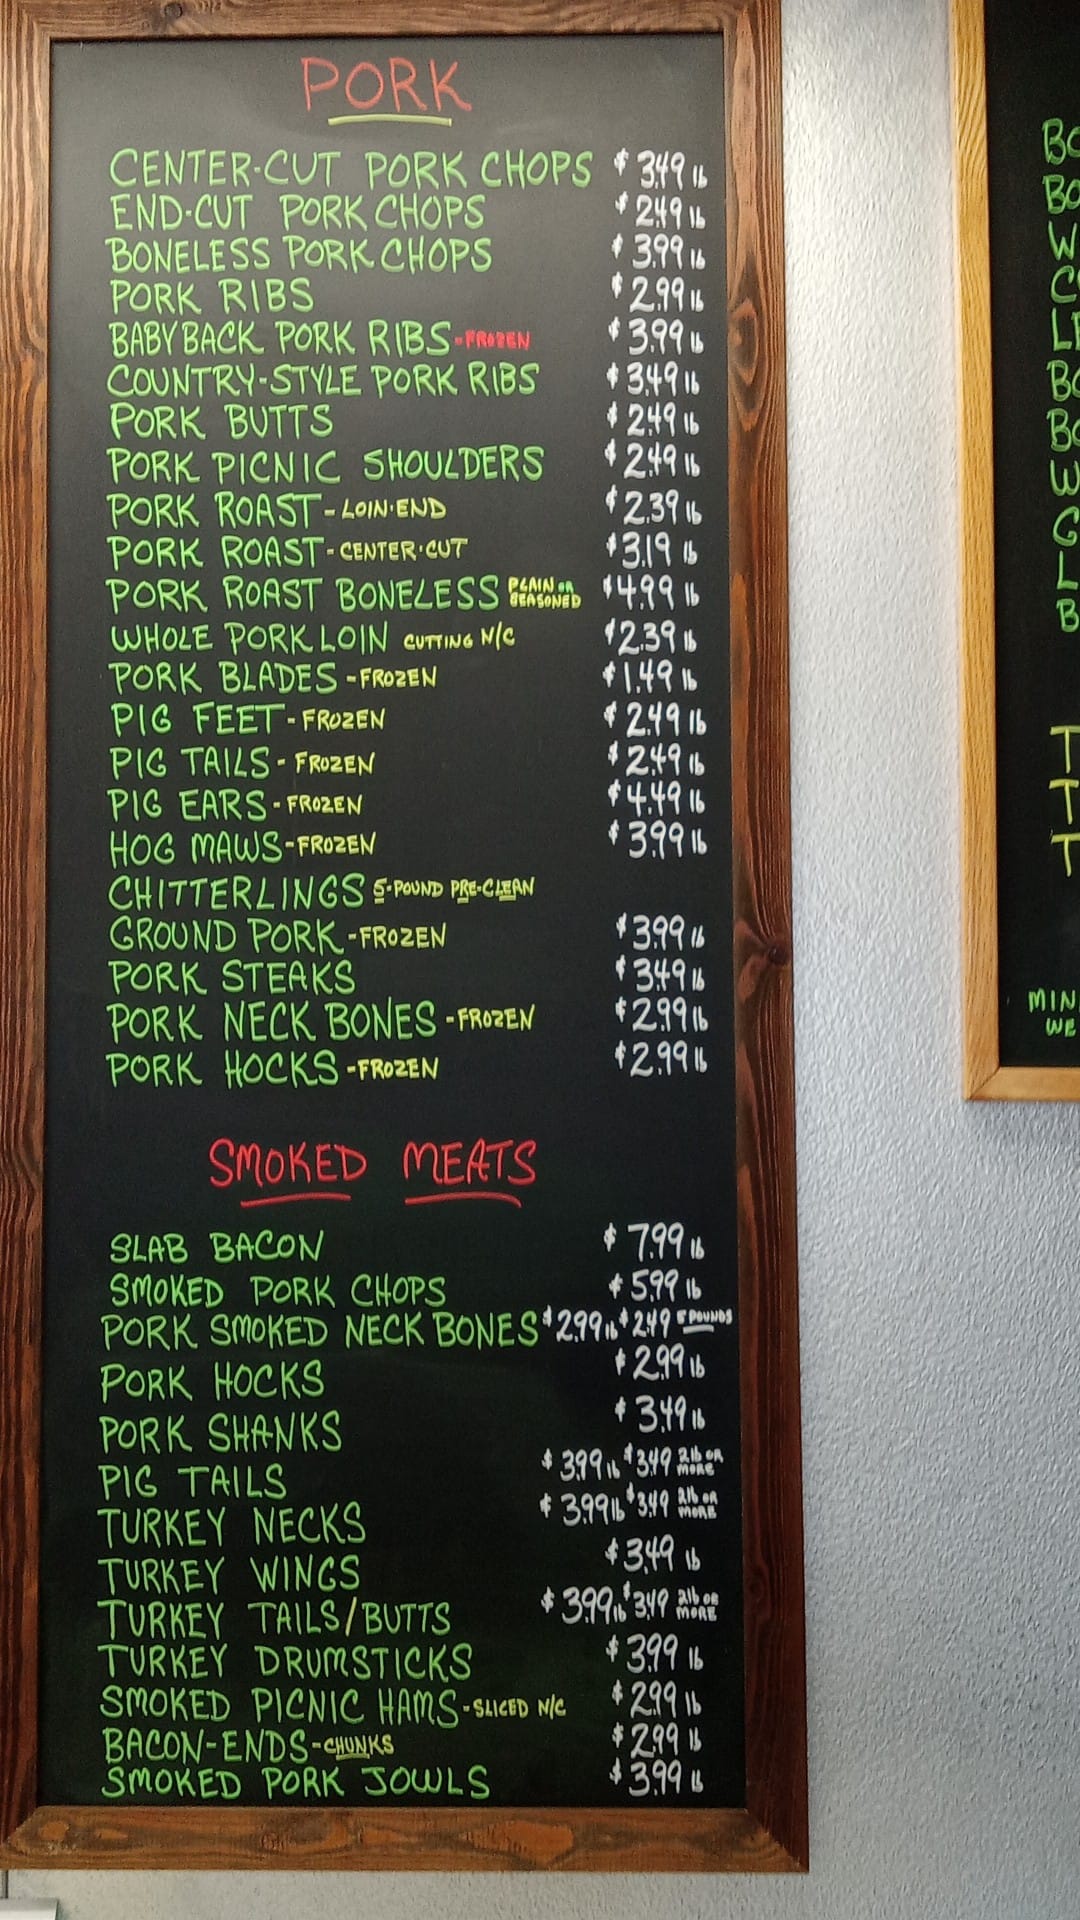 PORK
CENTER-CUT PORK CHOPS $3.49 lb
END-CUT PORK CHOPS $2.49 lb
BONELESS PORK CHOPS $3.99 lb
PORK RIBS $2.99 lb
BABYBACK PORK RIBS-FROZEN $3.99 lb
COUNTRY-STYLE PORK RIBS $3.49 lb
PORK BUTTS $2.49 lb
PORK PICNIC SHOULDERS $2.49 lb
PORK ROAST-LOIN-END $2.39 lb
PORK ROAST-CENTER-CUT $3.19 lb
PORK ROAST BONELESS PLAIN OR SEASONED $4.99 lb
WHOLE PORK LOIN CUTTING N/C $2.39 lb
PORK BLADES-FROZEN $1.49 lb
PIG FEET-FROZEN $2.49 lb
PIG TAILS-FROZEN $2.49 lb
PIG EARS-FROZEN $4.49 lb
HOG MAWS-FROZEN $3.99 lb
CHITTERLINGS 5-POUND PRE-CLEAN
GROUND PORK-FROZEN $3.99 lb
PORK STEAKS $3.49 lb
PORK NECK BONES-FROZEN $2.99 lb
PORK HOCKS-FROZEN $2.99 lb
SMOKED MEATS
SLAB BACON $7.99 lb
SMOKED PORK CHOPS $5.99 lb
PORK SMOKED NECK BONES $2.99 lb $2.49 5 POUNDS
PORK HOCKS $2.99 lb
PORK SHANKS $3.49 lb
PIG TAILS $3.99 lb $3.49 2 lb OR MORE
TURKEY NECKS $3.99 lb $3.49 2 lb OR MORE
TURKEY WINGS $3.49 lb
TURKEY TAILS/BUTTS $3.99 lb $3.49 2 lb OR MORE
TURKEY DRUMSTICKS $3.99 lb
SMOKED PICNIC HAMS-SLICED N/C $2.99 lb
BACON-ENDS-CHUNKS $2.99 lb
SMOKED PORK JOWLS $3.99 lb